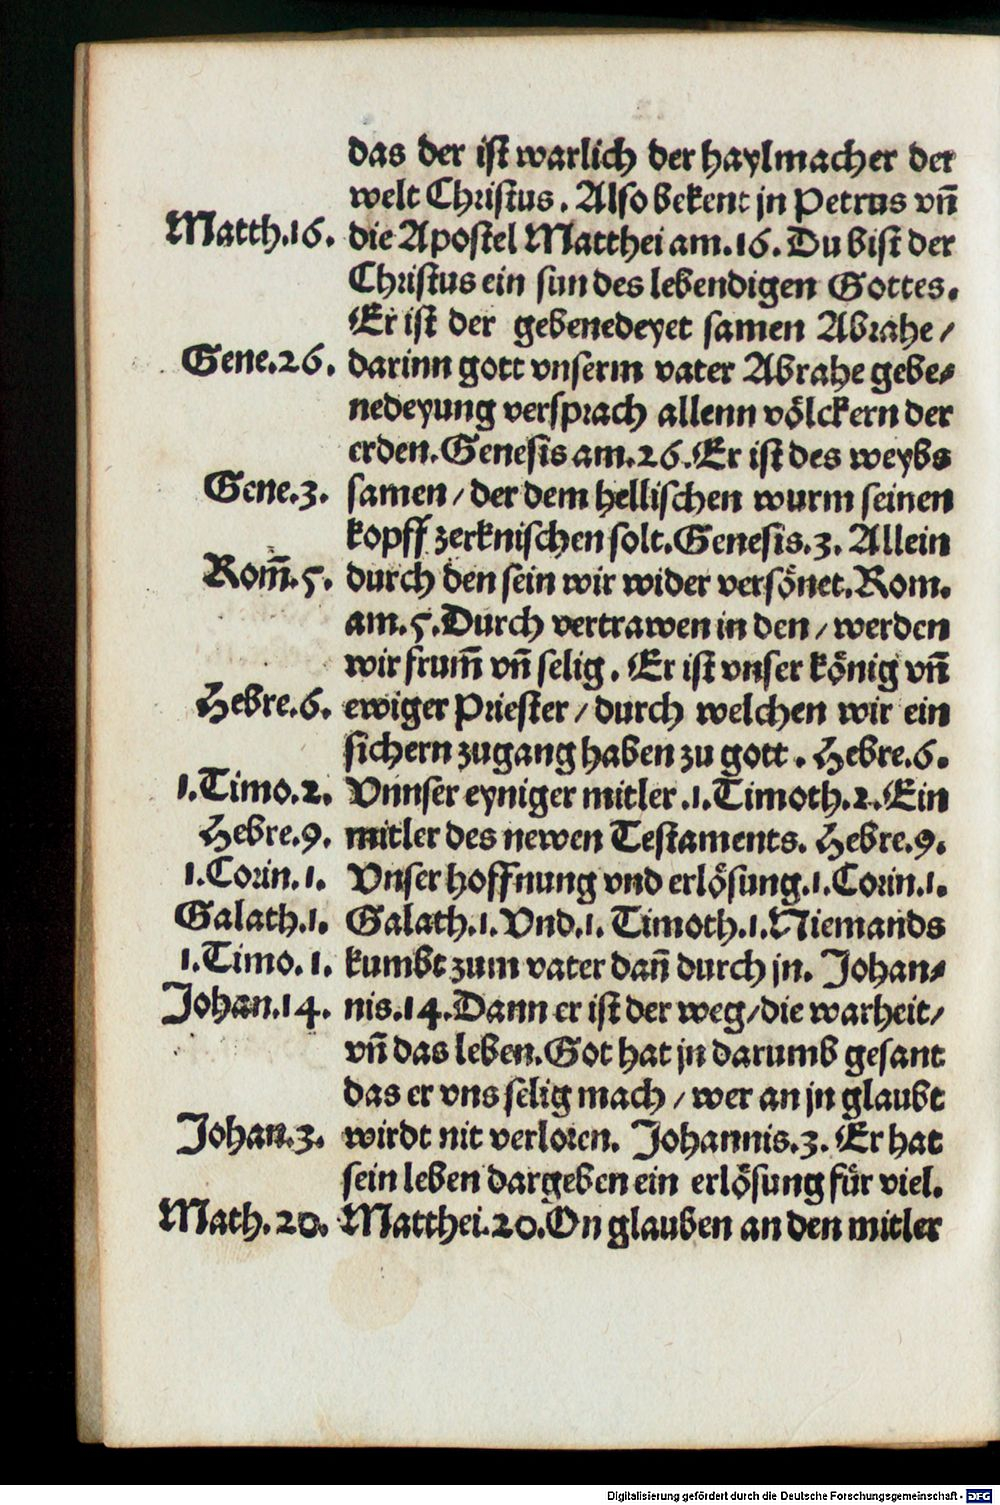 das der ist warlich der haylmacher der
welt Christus. Also bekent jn Petrus vn̄
Matth.16. die Apostel Matthei am.16. Du bist der
Christus ein sun des lebendigen Gottes.
Er ist der gebenedeyet samen Abrahe/
Gene.26. darinn gott vnserm vater Abrahe gebe⸗
nedeyung versprach allenn völckern der
erden. Genesis am.26. Er ist des weybs
Gene.3. samen/ der dem hellischen wurm seinen
kopff zerknischen solt. Genesis.3. Allein
Rom̄.5. durch den sein wir wider versönet. Rom.
am.5. Durch vertrawen in den/ werden
wir frum̄ vn̄ selig. Er ist vnser könig vn̄
Hebre.6. ewiger Priester/ durch welchen wir ein
sichern zugang haben zu gott. Hebre.6.
1.Timo.2. Vnnser eyniger mitler.1.Timoth.2. Ein
Hebre.9. mitler des newen Testaments. Hebre.9.
1.Corin.1. Vnser hoffnung vnd erlösung.1.Corin.1.
Galath.1. Galath.1. Vnd.1. Timoth.1. Niemands
1.Timo.1. kumbt zum vater dan̄ durch jn. Johan⸗
Johan.14. nis.14. Dann er ist der weg/ die warheit/
vn̄ das leben. Got hat jn darumb gesant
das er vns selig mach/ wer an jn glaubt
Johan.3. wirdt nit verloren. Johannis.3. Er hat
sein leben dargeben ein erlösung für viel.
Math.20. Matthei.20. On glauben an den mitler
Digitalisierung gefördert durch die Deutsche Forschungsgemeinschaft - DFG